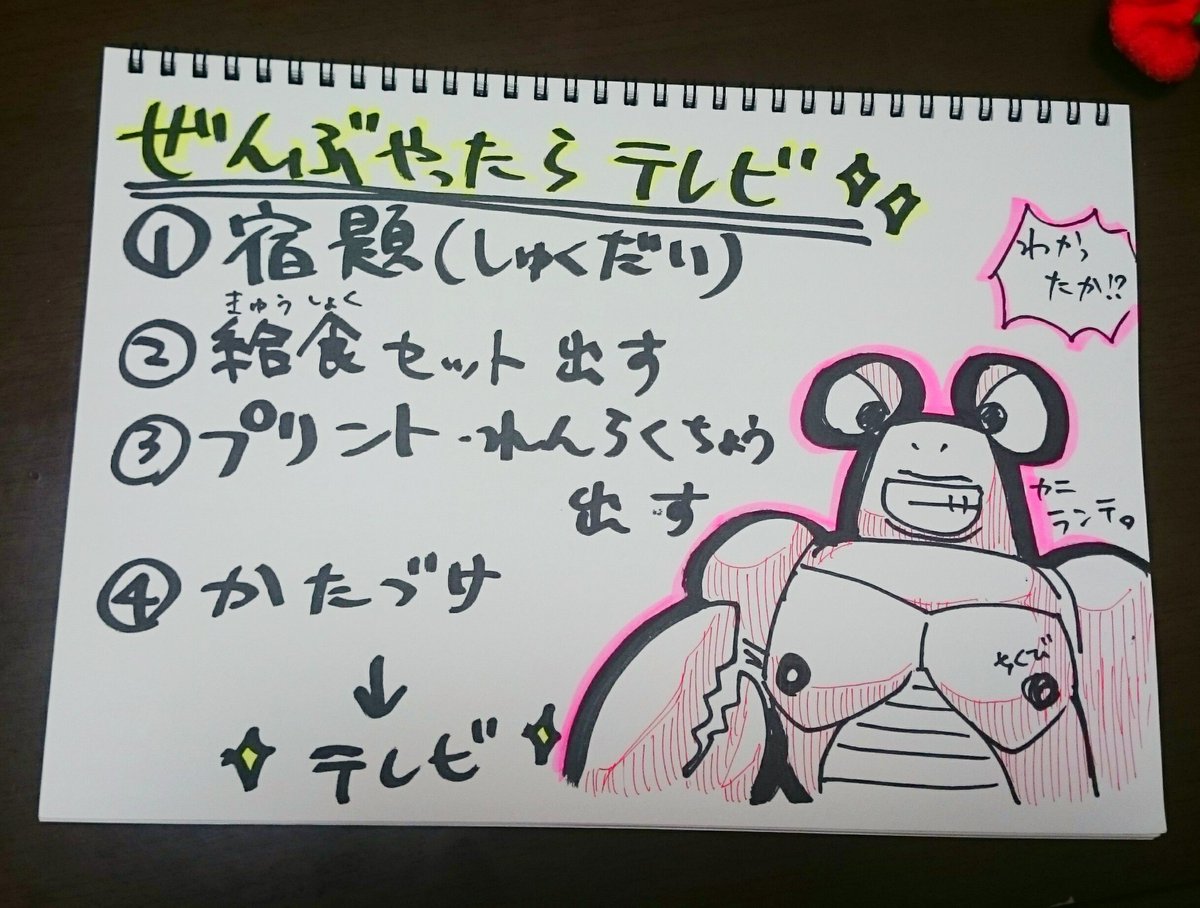 ぜんぶやったらテレビ
① 宿題(しゅくだい)
きゅうしょく
② 給食セット出す
③ プリント・れんらくちょう
出す
④ かたづけ
↓
テレビ
わかっ
たか!?
カニ
ランテ。
ちくび